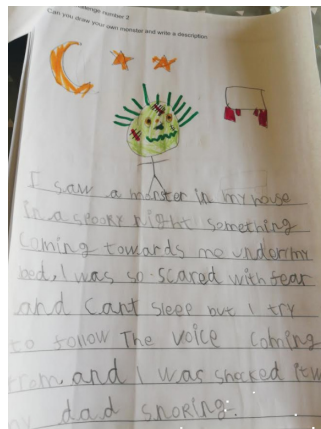 allenge number 3
Can you draw your own monster and write a description
I saw a monster in my house
in a spooky night something
coming towards me under my
bed, I was so scared with fear
and cant sleep but I try
to follow The voice coming
from and I was shocked it w
my dad snoring.